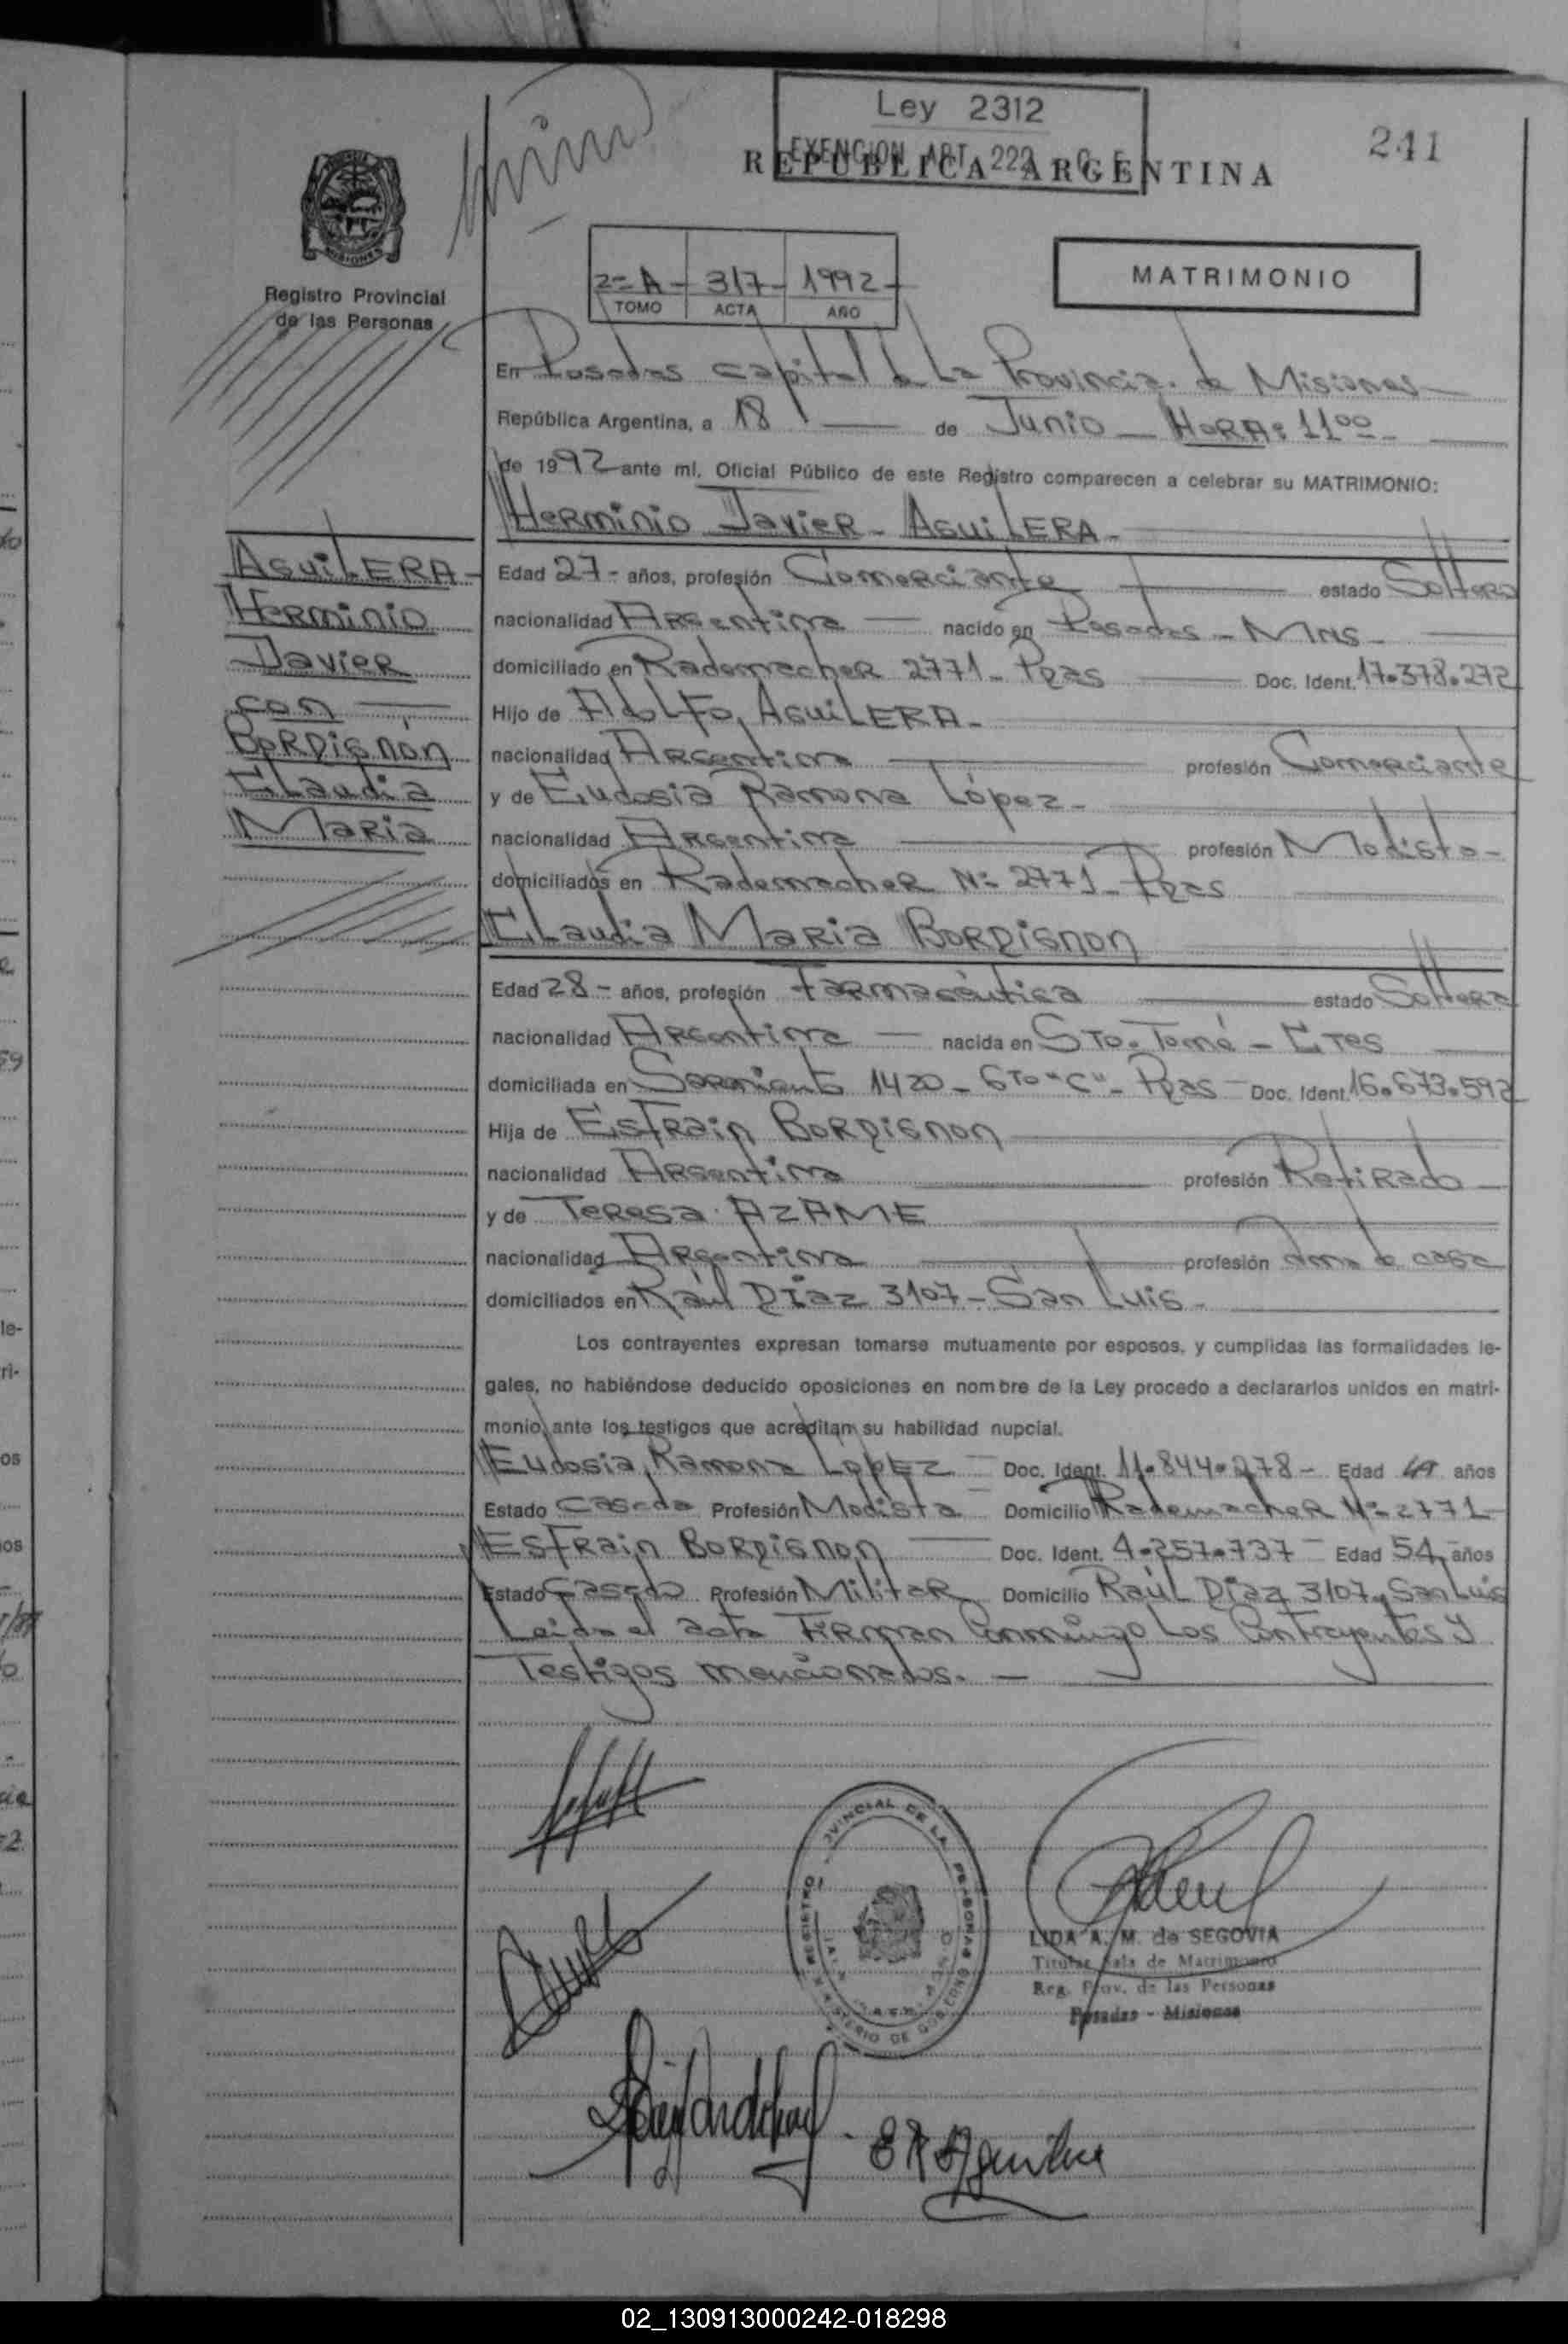 Ley 2312
EXENCION ART. 222
241
REPUBLICA ARGENTINA
MISIONES
Registro Provincial
de las Personas
2=A - 317 - 1992 -
TOMO ACTA AÑO
MATRIMONIO
En Posadas capital de La Provincia de Misiones
República Argentina, a 18 de Junio HORA: 11 00
de 1992 ante mí, Oficial Público de este Registro comparecen a celebrar su MATRIMONIO:
Herminio Javier - AGUILERA -
AGUILERA -
Herminio
Javier
con
BORDIGNON
Claudia
Maria
Edad 27 - años, profesión Comerciante estado Soltero
nacionalidad Argentina nacido en Posadas - Mns -
domiciliado en Rademacher 2771 - Pdas Doc. Ident. 17.378.272
Hijo de Adolfo, AGUILERA -
nacionalidad Argentina profesión Comerciante
y de Eudosia Ramona López -
nacionalidad Argentina profesión Modista -
domiciliados en Rademacher Nº 2771 - Pdas
Claudia Maria BORDIGNON
Edad 28 - años, profesión Farmacéutica estado Soltera
nacionalidad Argentina nacida en Sto. Tomé - Ctes
domiciliada en Sarmiento 1420 - 6to "C" - Pdas - Doc. Ident. 16.673.592
Hija de Esfrain BORDIGNON
nacionalidad Argentina profesión Retirado
y de Teresa AZAME
nacionalidad Argentina profesión ama de casa
domiciliados en Raúl Díaz 3107 - San Luis -
Los contrayentes expresan tomarse mutuamente por esposos, y cumplidas las formalidades le-
gales, no habiéndose deducido oposiciones en nombre de la Ley procedo a declararlos unidos en matri-
monio, ante los testigos que acreditan su habilidad nupcial.
Eudosia Ramona López Doc. Ident. 11.844.278 - Edad 49 años
Estado Casada Profesión Modista Domicilio Rademacher Nº 2771
Esfrain BORDIGNON Doc. Ident. 4.257.737 - Edad 54 años
Estado Casado Profesión Militar Domicilio Raúl Díaz 3107, San Luis
Leida el acta Firman Conmigo Los Contrayentes y
Testigos mencionados. -
REGISTRO PROVINCIAL DE LAS PERSONAS
MINISTERIO DE GOBIERNO
LIDA A. M. de SEGOVIA
Titular Sala de Matrimonio
Reg. Prov. de las Personas
Posadas - Misiones
02_130913000242-018298